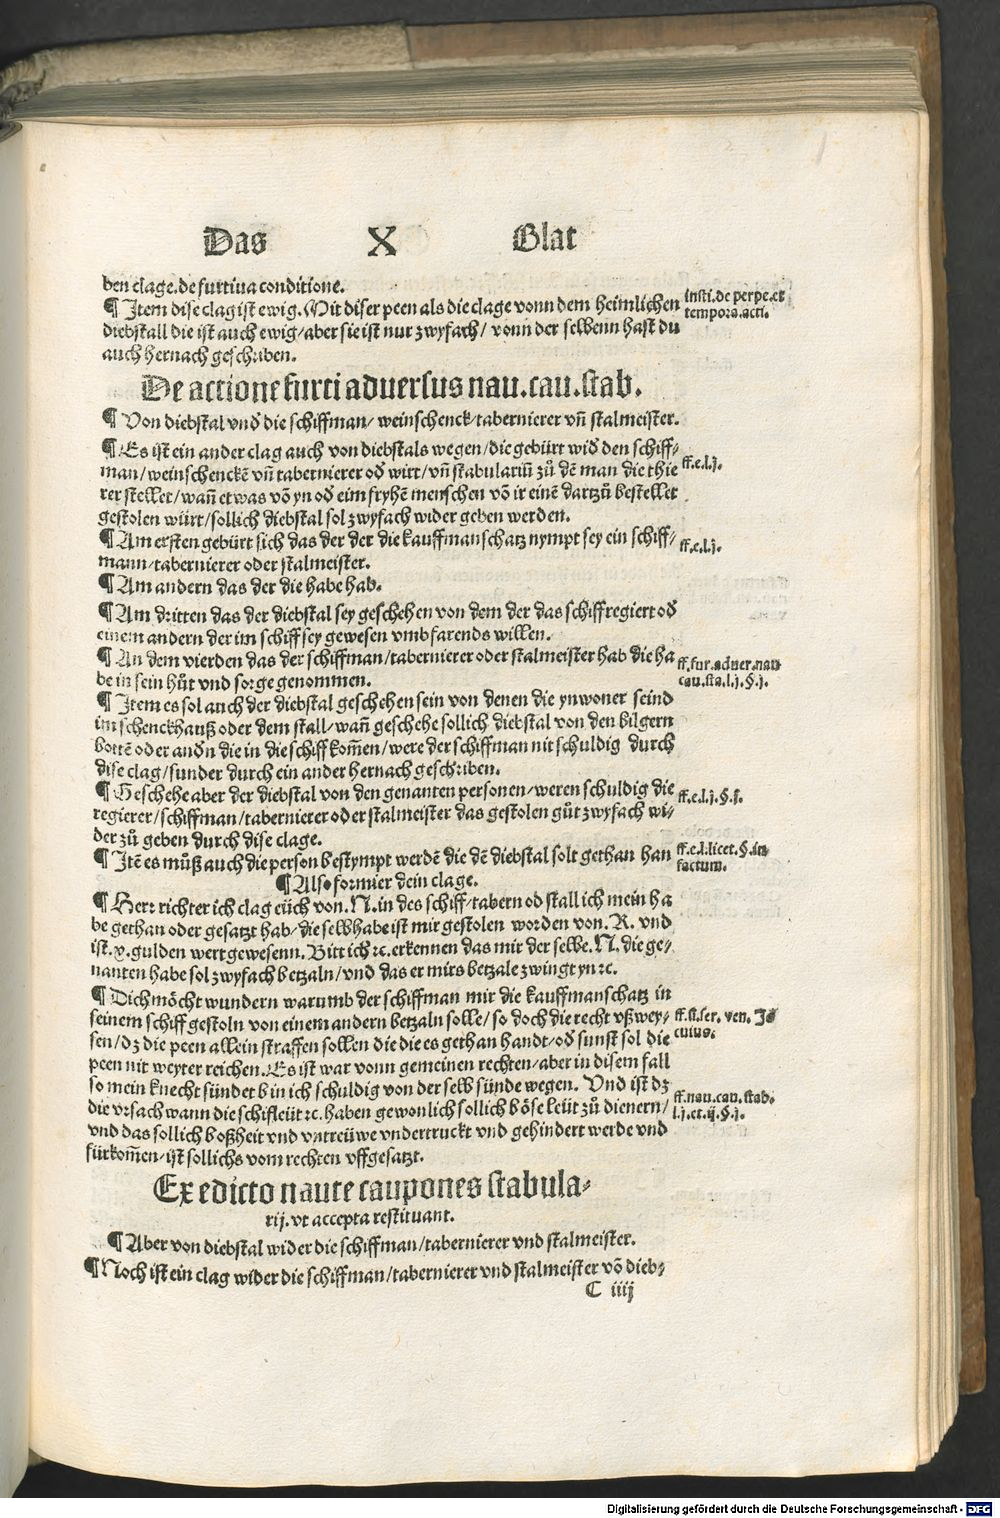 Das X Blat
ben clage.de furtiua conditione.
¶ Item dise clag ist ewig. Mit diser peen als die clage vonn dem heimlichen
insti.de perpe.et
tempora.acti.
diebstall die ist auch ewig/aber sie ist nur zwyfach/ vonn der selbenn hast du
auch hernach geschriben.
De actione furti aduersus nau.cau.stab.
¶ Von diebstal vnd̄ die schiffman/ weinschenck/tabernierer vn̄ stalmeister.
¶ Es ist ein ander clag auch von diebstals wegen/die gebürt wid̄ den schiff⸗
man/weinschenckē vn̄ tabernierer od̄ wirt/vn̄ stabulariū zů dē man die thie
ff.e.l.j.
rer stellet/wan̄ etwas vō yn od̄ eim fryhē menschen vō ir einē dartzů bestellet
gestolen würt/sollich diebstal sol zwyfach wider geben werden.
¶ Am ersten gebürt sich das der der die kauffmanschatz nympt sey ein schiff⸗
ff.e.l.j.
mann/tabernierer oder stalmeister.
¶ Am andern das der die habe hab.
¶ Am dritten das der diebstal sey geschehen von dem der das schiff regiert od̄
einem andern der im schiff sey gewesen vmbfarends willen.
¶ An dem vierden das der schiffman/tabernierer oder stalmeister hab die ha
ff.fur.aduer.nau
be in sein hůt vnd sorge genommen.
cau.sta.l.j.§.j.
¶ Item es sol auch der diebstal geschehen sein von denen die ynwoner seind
im schenckhauß oder dem stall/wan̄ geschehe sollich diebstal von den bilgern
bottē oder and̄n die in die schiff kom̄en/were der schiffman nit schuldig durch
dise clag/sunder durch ein ander hernach geschriben.
¶ Geschehe aber der diebstal von den genanten personen/weren schuldig die
ff.e.l.j.§.f.
regierer/schiffman/tabernierer oder stalmeister das gestolen gůt zwyfach wi⸗
der zů geben durch dise clage.
¶ Itē es můß auch die person bestympt werdē die dē diebstal solt gethan han
ff.e.l.licet.§.in
factum.
¶ Also formier dein clage.
¶ Herr richter ich clag eüch von.N.in des schiff/tabern od stall ich mein ha
be gethan oder gesatzt hab/die selb habe ist mir gestolen worden von.R. vnd
ist.x.gulden wert gewesenn. Bitt ich ꝛc.erkennen das mir der selbe.N.die ge⸗
nanten habe sol zwyfach betzaln/vnd das er mirs betzale zwingt yn ꝛc.
¶ Dich möcht wundern warumb der schiffman mir die kauffmanschatz in
seinem schiff gestoln von einem andern betzaln solle/so doch die recht vßwey⸗
ff.si.ser. ven. Is
cuius.
sen/dz die peen allein straffen sollen die die es gethan handt/od̄ sunst sol die
peen nit weyter reichen. Es ist war vonn gemeinen rechten/aber in disem fall
so mein knecht sündet bin ich schuldig von der selb sünde wegen. Vnd ist dz
ff.nau.cau.stab.
die vrsach wann die schifleüt ꝛc.haben gewonlich sollich böse leüt zů dienern/
l.j.et.ij.§.j.
vnd das sollich boßheit vnd vntreüwe vndertruckt vnd gehindert werde vnd
fürkom̄en/ist sollichs vom rechten vffgesatzt.
Ex edicto naute caupones stabula⸗
rij.vt accepta restituant.
¶ Aber von diebstal wider die schiffman/tabernierer vnd stalmeister.
¶ Noch ist ein clag wider die schiffman/tabernierer vnd stalmeister vō dieb⸗
C iiij
Digitalisierung gefördert durch die Deutsche Forschungsgemeinschaft - DFG